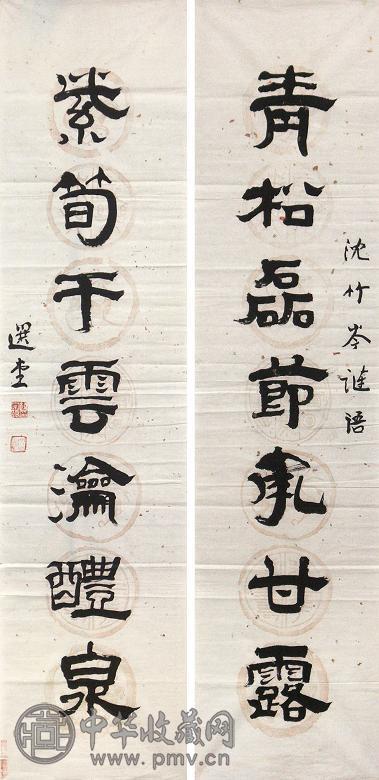 青松磊節承甘露
沈竹岑聯語
紫筍干雲瀹醴泉
選堂
中华收藏网
www.pmv.cn